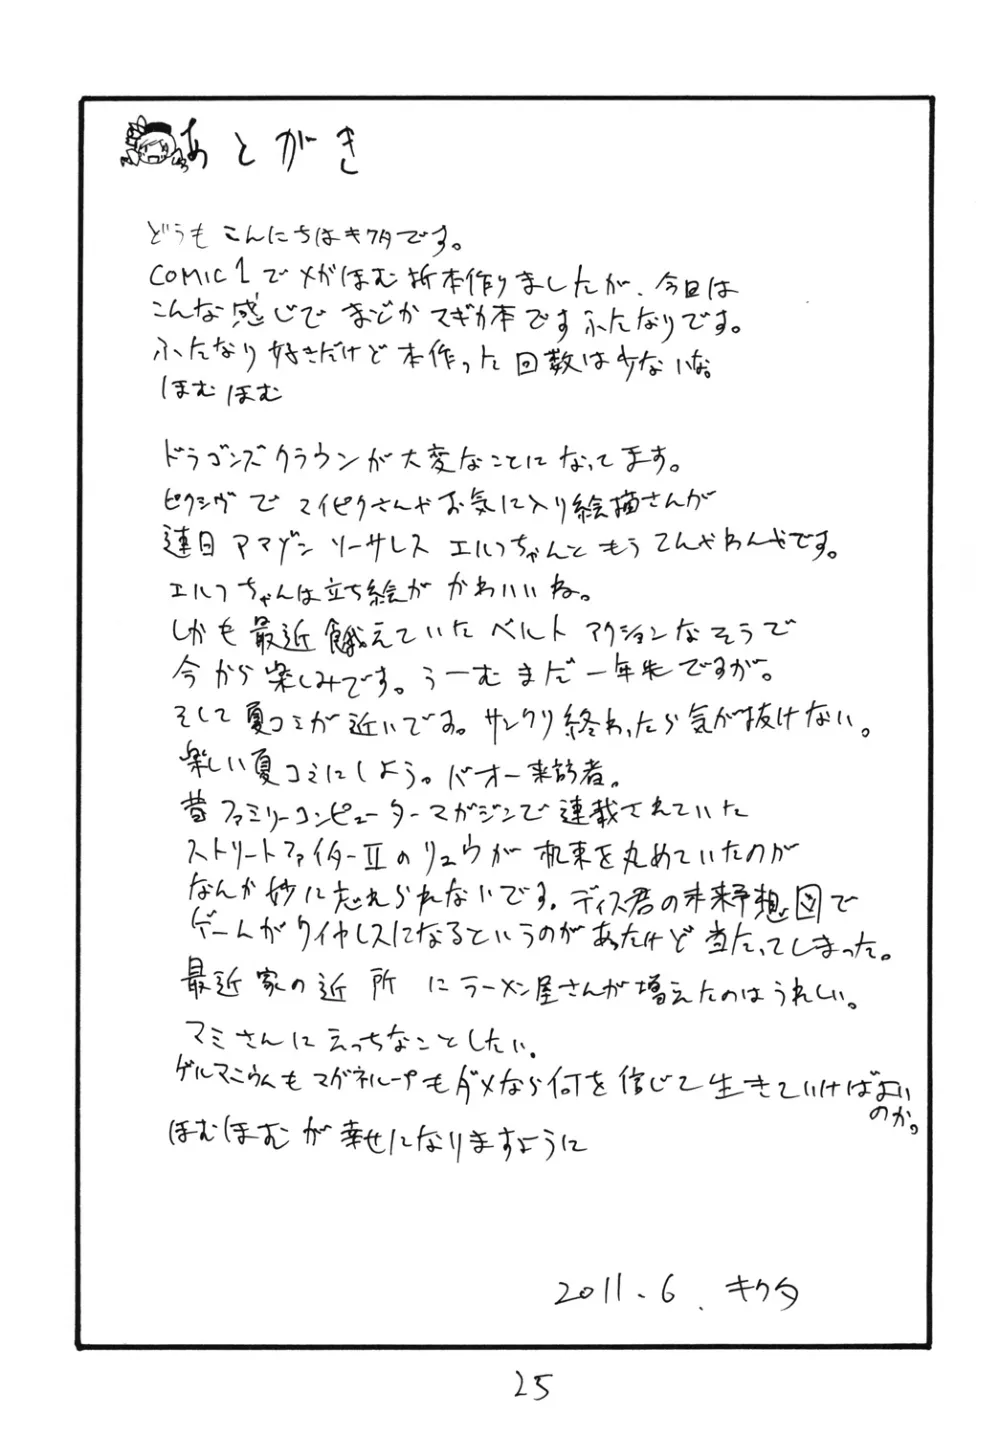 あとがき
どうもこんにちはキクタです。
COMIC1でメガほむ折本作りましたが、今回は
こんな感じでまどかマギカ本ですふたなりです。
ふたなり好きだけど本作った回数は少ないな。
ほむほむ
ドラゴンズクラウンが大変なことになってます。
ピクシヴでマイピクさんやお気に入り絵描さんが
連日アマゾンソーサレスエルフちゃんともうてんやわんやです。
エルフちゃんは立ち絵がかわいいね。
しかも最近餓えていたベルトアクションなそうで
今から楽しみです。うーむまだ一年先ですが。
そして夏コミが近いです。サンクリ終わったら気が抜けない。
楽しい夏コミにしよう。バオー来訪者。
昔ファミリーコンピューターマガジンで連載されていた
ストリートファイターⅡのリュウが机の束を丸めていたのが
なんか妙に忘れられないです。ディス君の未来予想図で
ゲームがワイヤレスになるというのがあったけど当たってしまった。
最近家の近所にラーメン屋さんが増えたのはうれしい。
マミさんにえっちなことしたい。
ゲルマニウムもマグネループもダメなら何を信じて生きていけばよい
のか。
ほむほむが幸せになりますように
2011.6.キクタ
25